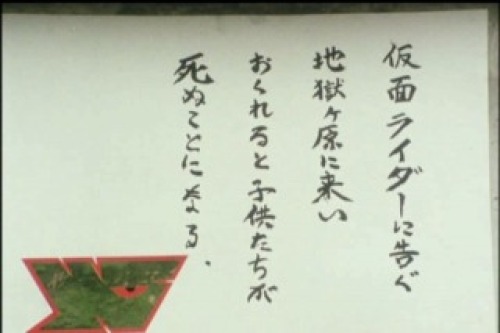 仮面ライダーに告ぐ
地獄ヶ原に来い
おくれると子供たちが
死ぬことになる、